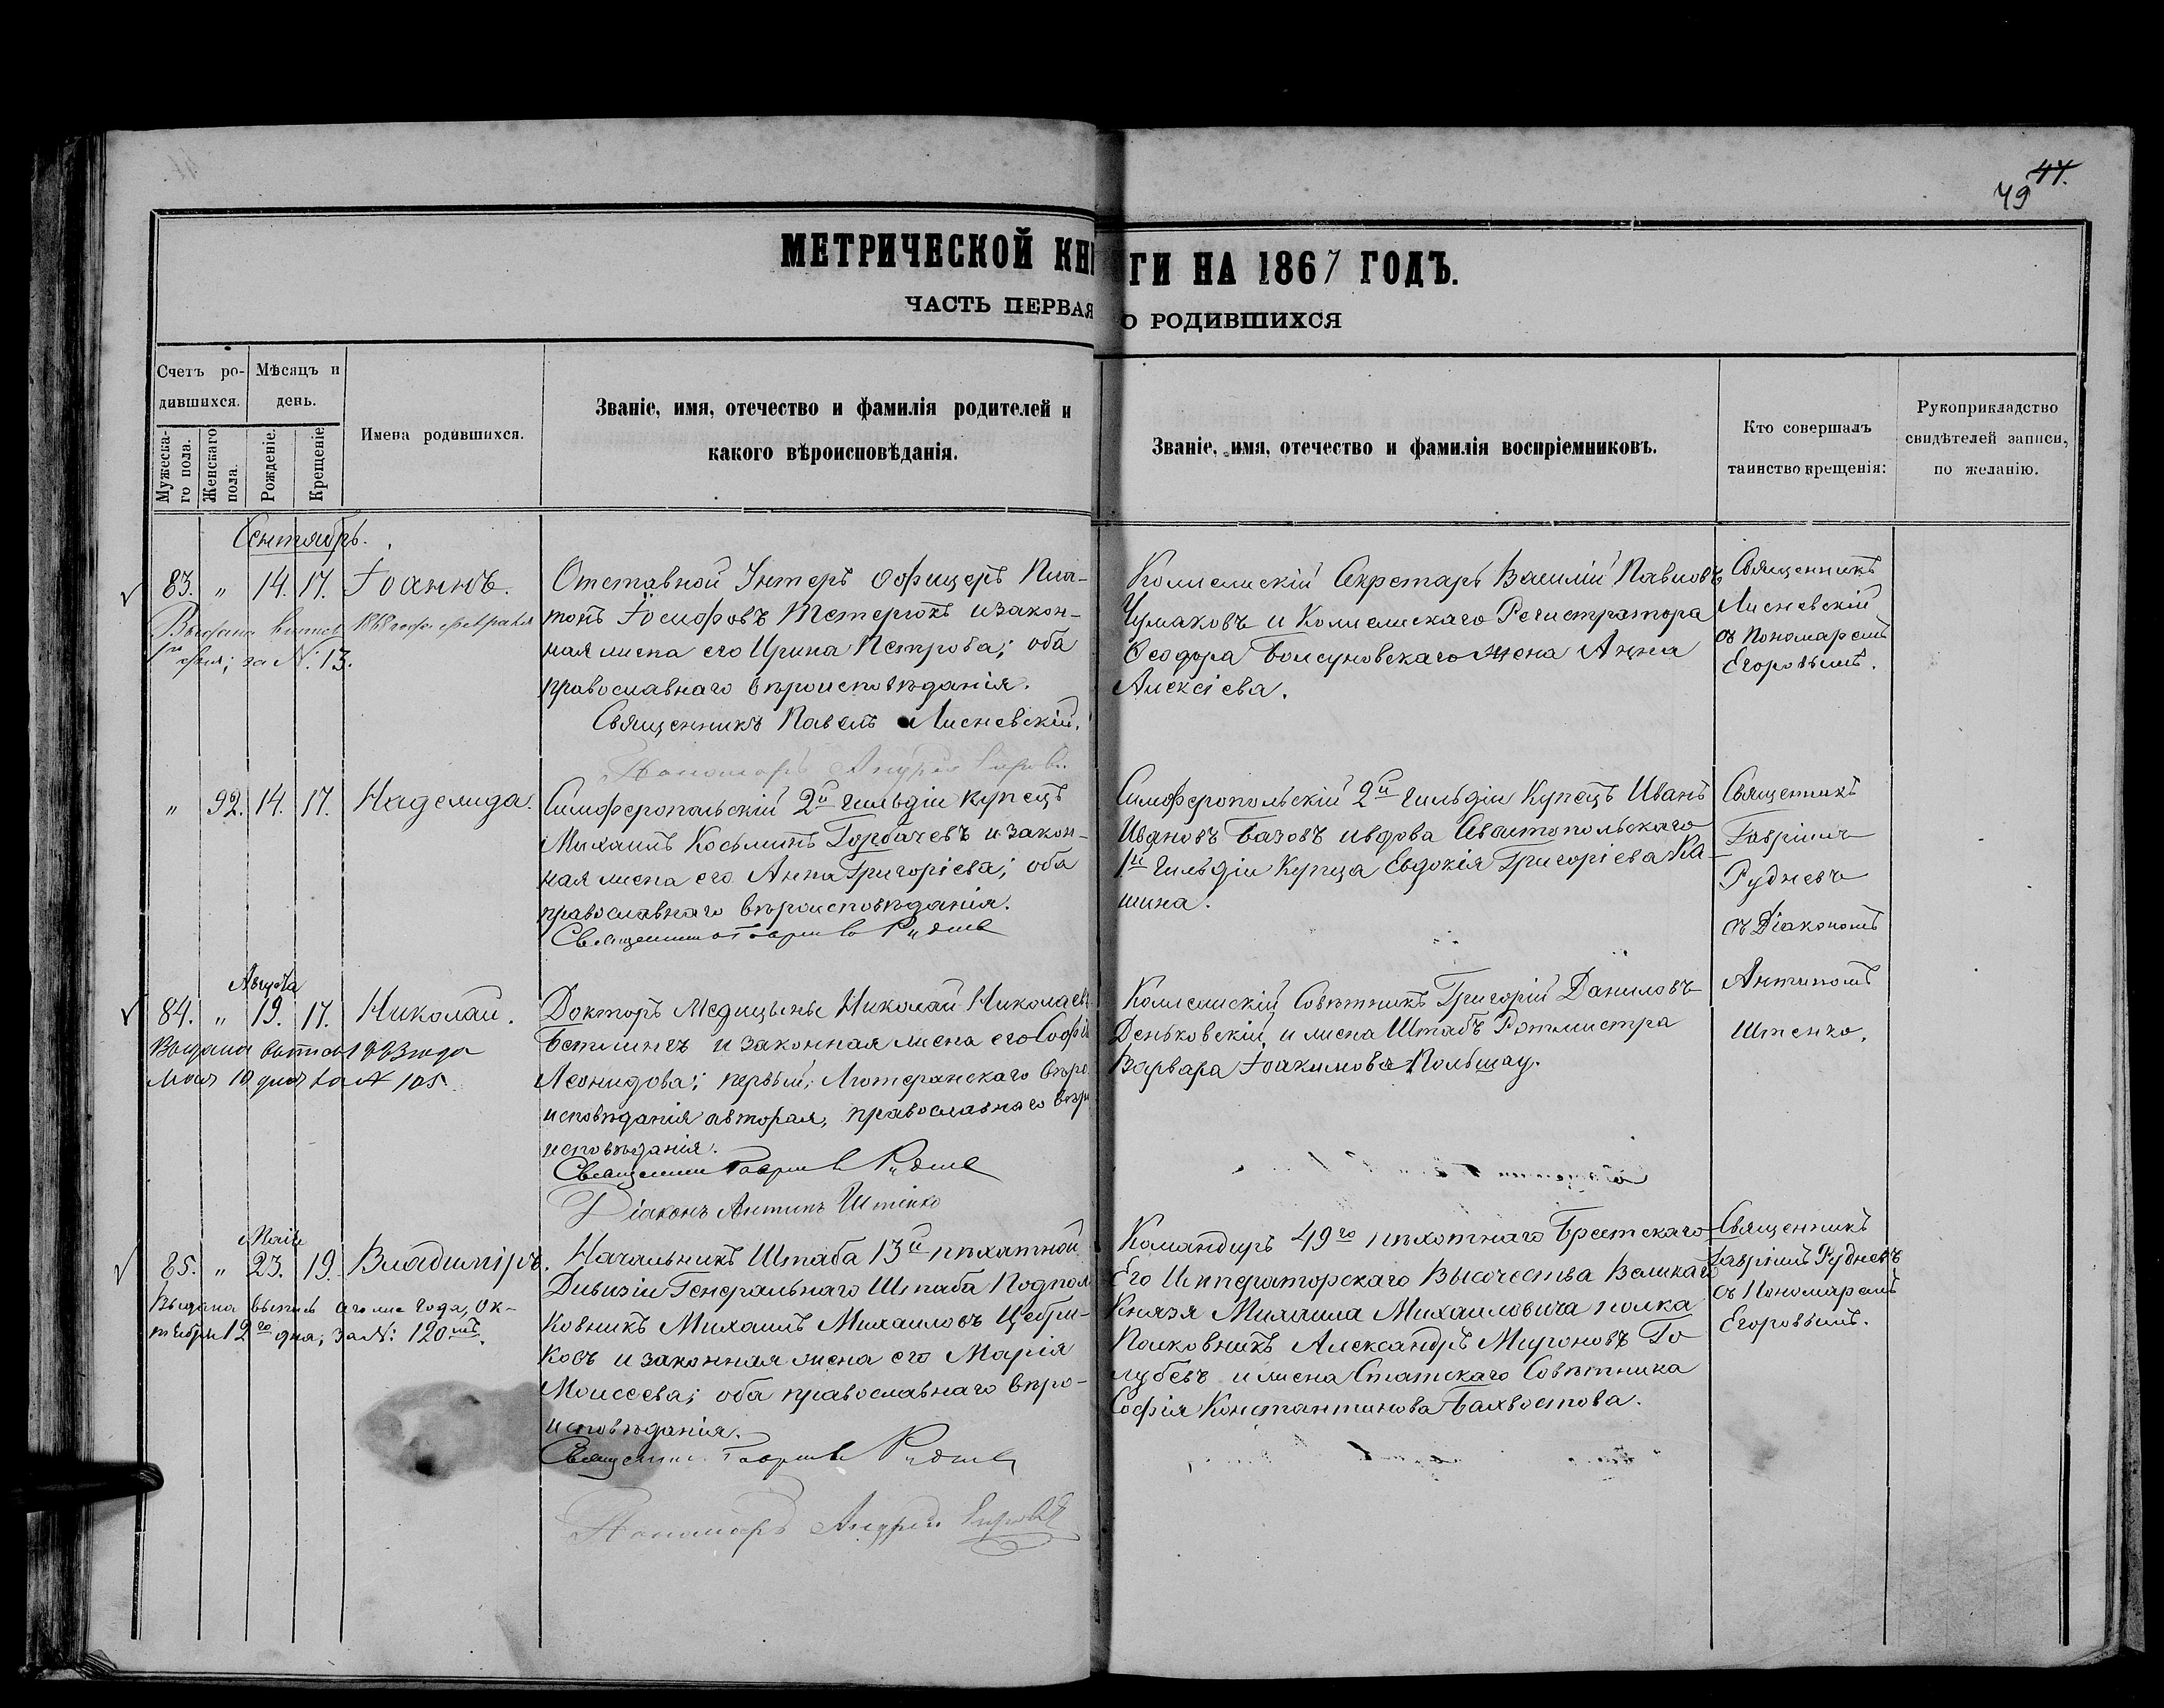 44.
79
МЕТРИЧЕСКОЙ КНИГИ НА 1867 ГОДЪ.
ЧАСТЬ ПЕРВАЯ О РОДИВШИХСЯ
Счетъ ро-
дившихся.
Мѣсяцъ и
день.
Мужеска-
го пола.
Женскаго
пола.
Рожденіе.
Крещеніе
Имена родившихся.
Званіе, имя, отечество и фамилія родителей и
какого вѣроисповѣданія.
Званіе, имя, отечество и фамилія воспріемниковъ.
Кто совершалъ
таинство крещенія:
Рукоприкладство
свидѣтелей записи,
по желанію.
Сентябрь.
83. " 14. 17. Іоаннъ.
Выдана
за N: 13.
Отставной Унтеръ Офицеръ Пла-
тонъ Іосифовъ Тетерюкъ и закон-
ная жена его Ирина Петрова; оба
православнаго вѣроисповѣданія.
Священникъ Павелъ Лисневскій.
Пономарь Андрей
Коллежскій Секретарь Василій Павловъ
Чумаковъ и Коллежскаго Регистратора
Ѳеодора Болсуновскаго жена Анна
Алексіева.
Священникъ
Лисневскій
съ Пономаремъ
Егоровымъ.
" 92. 14. 17. Надежда.
Симферопольскій 2й гильдіи купецъ
Михаилъ Косьминъ Горбачевъ и закон-
ная жена его Анна Григоріева; оба
православнаго вѣроисповѣданія.
Священникъ Гавріилъ Рудневъ
Симферопольскій 2й гильдіи Купецъ Иванъ
Ивановъ Базовъ и вдова Севастопольскаго
1й гильдіи Купца Евдокія Григоріева Ка-
шина.
Священникъ
Гавріилъ
Рудневъ
съ Діакономъ
Антипомъ
Штенко.
Августа
84. " 19. 17. Николай.
Выдана выпись 1883 года
Мая 10 дня за N 105.
Докторъ Медицыны Николай Николаевъ
Бетлингъ и законная жена его Софія
Леонидова; первый, Лютеранскаго вѣро
исповѣданія а вторая, православнаго вѣро
исповѣданія.
Священникъ Гавріилъ Рудневъ
Діаконъ Антипъ Штенко
Коллежскій Совѣтникъ Григорій Даниловъ
Деньковскій и жена Штабъ Ротмистра
Варвара Іоакимова Польшау.
Маія
85. " 23. 19. Владиміръ.
Выдана выпись сего же года, Ок-
тября 12го дня, за N: 120мъ.
Начальникъ Штаба 13й пѣхотной
Дивизіи Генеральнаго Штаба Подпол
ковникъ Михаилъ Михаиловъ Цебри-
ковъ и законная жена его Марія
Моисеева; оба православнаго вѣро-
исповѣданія.
Священникъ Гавріилъ Рудневъ
Пономарь Андрей
Командиръ 49го пѣхотнаго Брестскаго
Его Императорскаго Высочества Великаго
Князя Михаила Михаиловича полка
Полковникъ Александръ Мироновъ Го
лубевъ и жена Статскаго Совѣтника
Софія Константинова Бахвостова.
Священникъ
Гавріилъ Рудневъ
съ Пономаремъ
Егоровымъ.